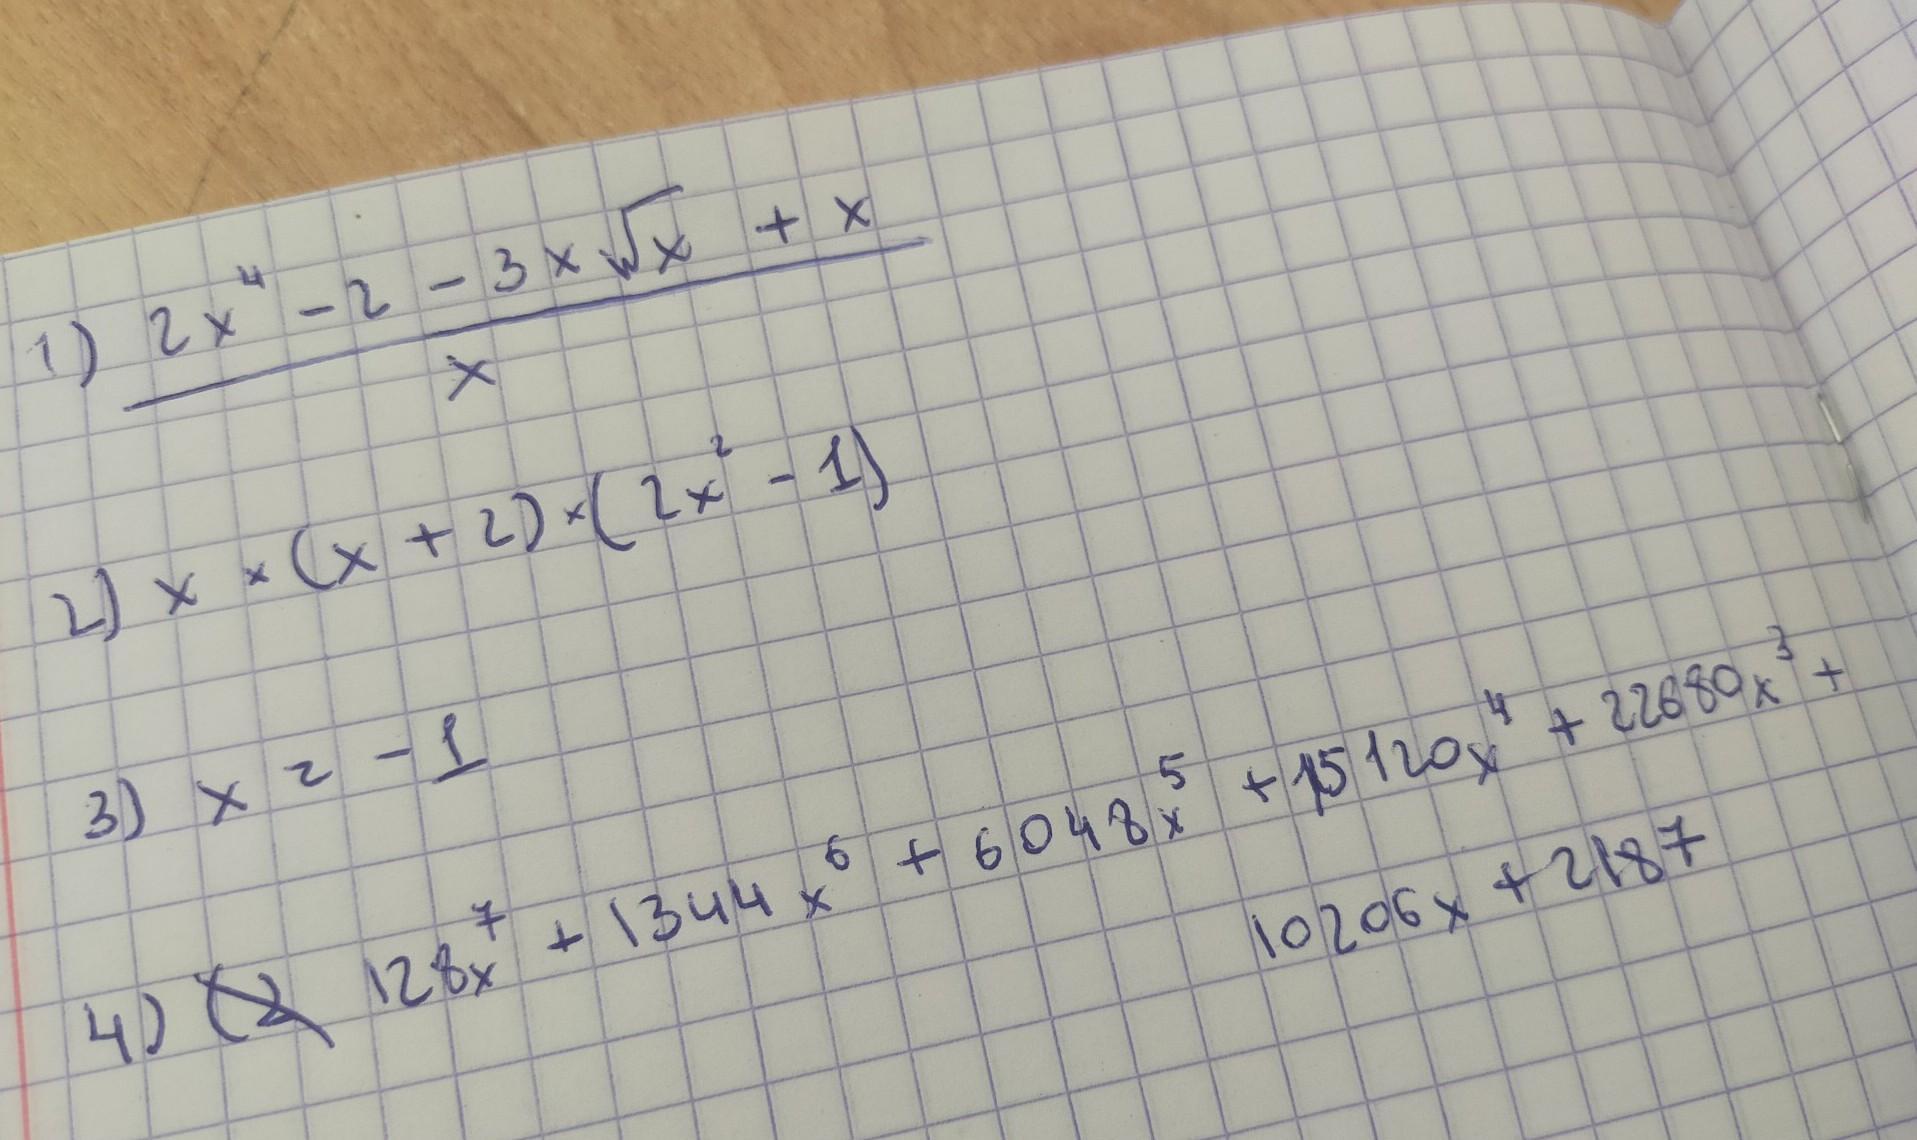 1) (2x⁴ - 2 - 3x√x + x) / x
2) x × (x + 2) × (2x² - 1)
3) x = - 1
4) 128x⁷ + 1344x⁶ + 6048x⁵ + 15120x⁴ + 22680x³ +
10206x + 2187